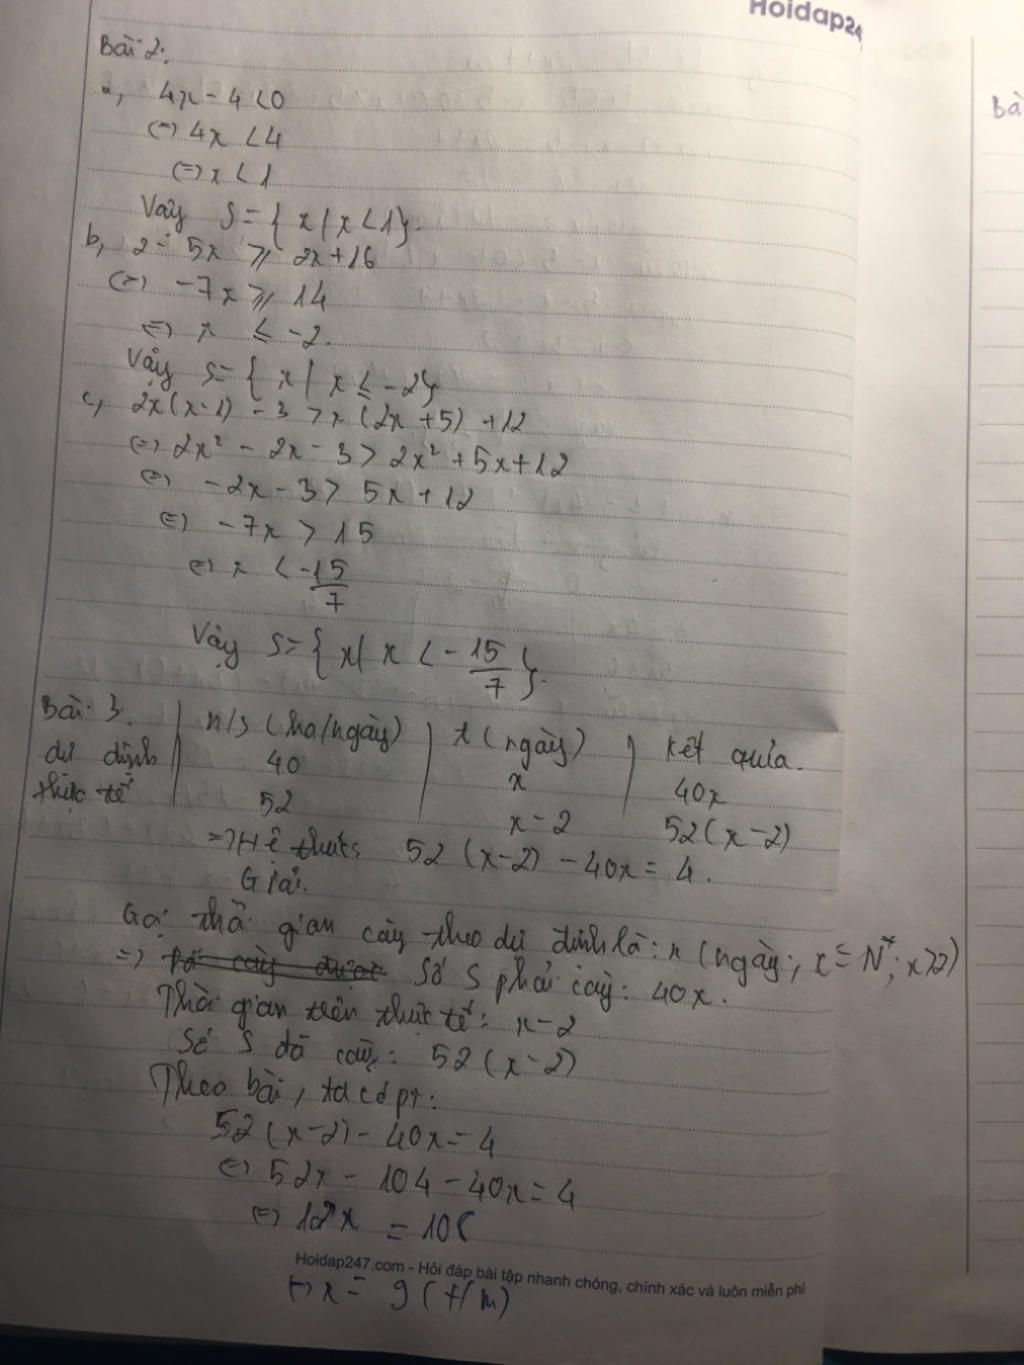 Hoidap24
Bài 2:
a, 4x - 4 < 0
(=) 4x < 4
(=) x < 1
Vậy S = { x / x < 1 }.
b, 2 - 5x ⩾ 2x + 16
(=) -7x ⩾ 14
(=) x ≤ -2.
Vậy S = { x / x ≤ -2 }
c, 2x(x-1) - 3 > x(2x+5) + 12
(=) 2x² - 2x - 3 > 2x² + 5x + 12
(=) -2x - 3 > 5x + 12
(=) -7x > 15
(=) x < -15/7
Vậy S = { x / x < -15/7 }.
Bài 3. | n/s (ha/ngày) | t (ngày) | kết quả.
dự định 40 x 40x
thực tế 52 x-2 52(x-2)
=> Hệ thức: 52(x-2) - 40x = 4.
Giải.
Gọi thời gian cày theo dự định là: x (ngày; x = N*; x > 2)
=> Số S phải cày: 40x.
Thời gian trên thực tế: x - 2
Số S đã cày: 52(x-2)
Theo bài, ta có pt:
52(x-2) - 40x = 4
(=) 52x - 104 - 40x = 4
(=) 12x = 108
Hoidap247.com - Hỏi đáp bài tập nhanh chóng, chính xác và luôn miễn phí
(=) x = 9 (t/m)
Bà